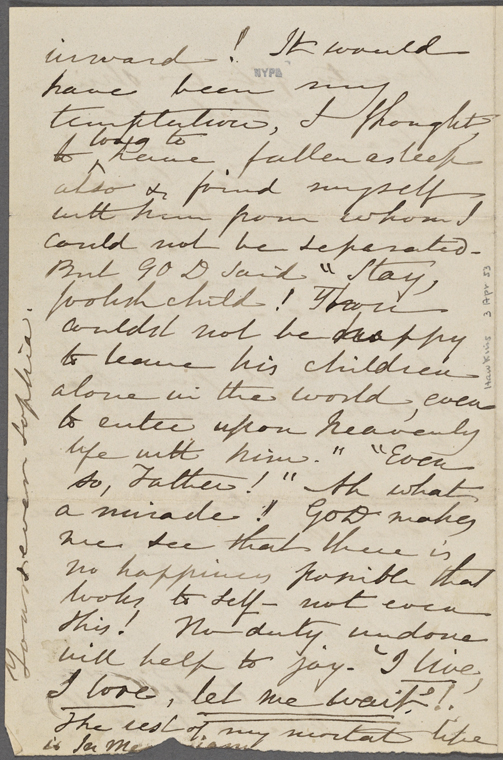 inward! It would
have been my
temptation, I thought,
to have fallen asleep
also & find myself
with him from whom I
could not be separated.
But GOD said "Stay,
foolish child! Thou
couldst not be happy
to leave his children
alone in the world, even
to enter upon heavenly
life with him." "Even
so, Father!" Ah what
a miracle!! GOD makes
me see that there is
no happiness possible that
looks to self - not even
this! No duty undone
will help to joy. "I live,
I love, let me wait"!!
The rest of my mortal life
is In Me
Yours ever Sophia.
NYPL
Hawkins 3 Apr 53